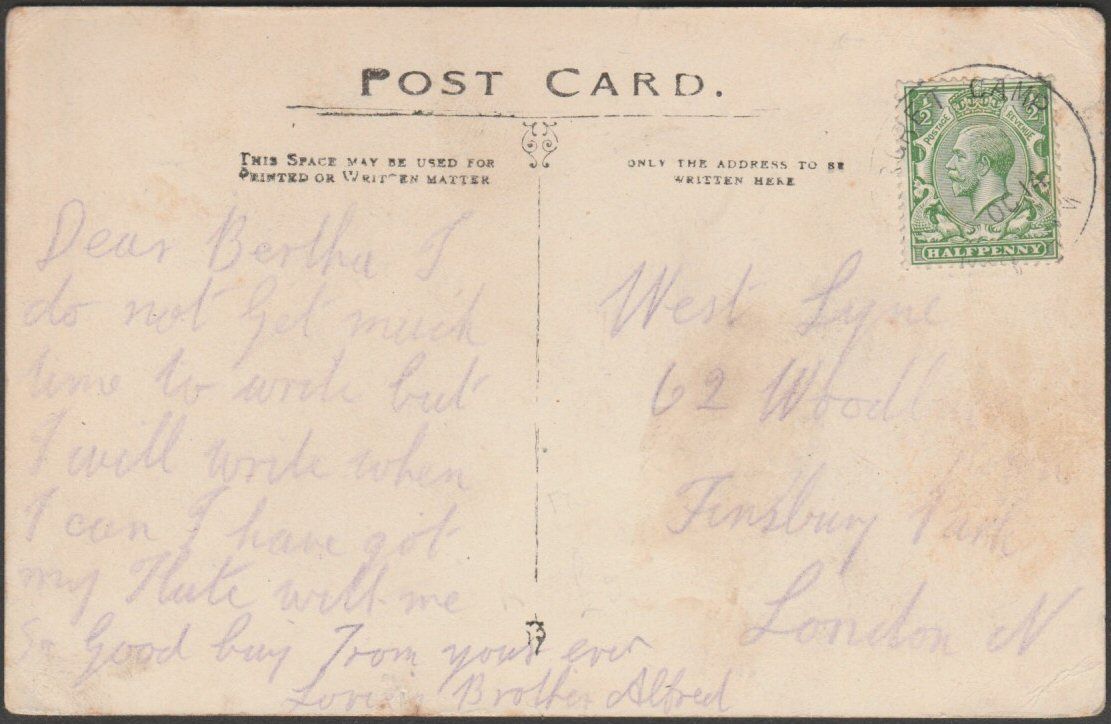 POST CARD.
THIS SPACE MAY BE USED FOR
PRINTED OR WRITTEN MATTER
ONLY THE ADDRESS TO BE
WRITTEN HERE
CAMP
OC
½
POSTAGE REVENUE
½
HALFPENNY
Dear Bertha I
do not Get much
time to write but
I will write when
I can I have got
my Flute with me
So Good buy From your ever
Loving Brother Alfred
West Lyne
62
Finsbury Park
London N